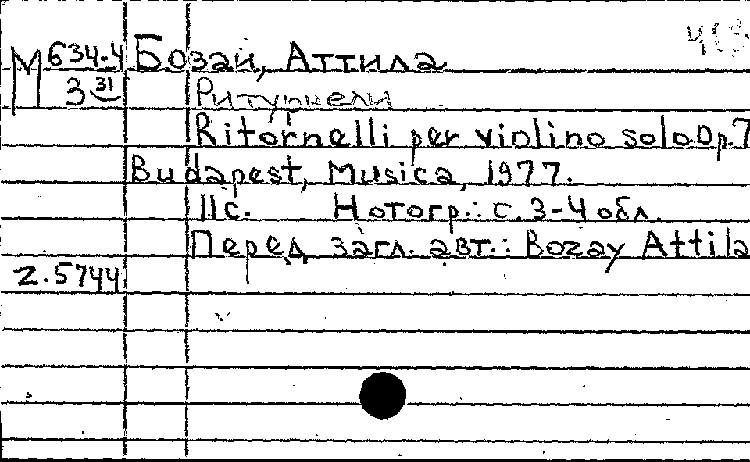 М 634-4 Бозаи, Аттила
3 31 Ритурнели
Ritornelli per violino solo Op. 7
Budapest, Musica, 1977.
11 с. Нотогр.: с. 3-4 обл.
Перед загл. авт.: Bozay Attila
Z.5744